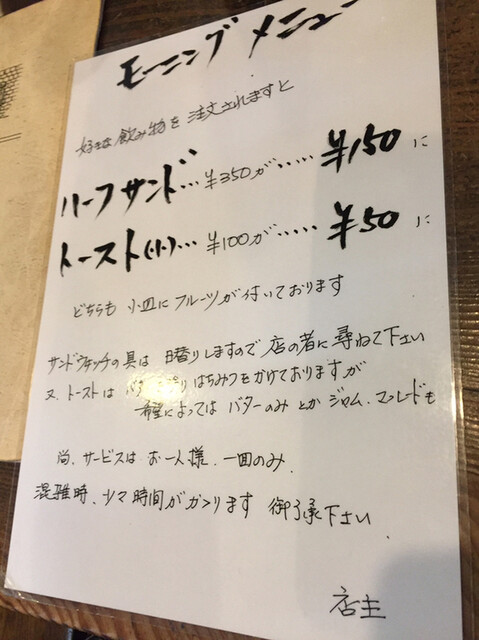 モーニングメニュー
好きな飲み物を注文されますと
ハーフサンド…¥350が……¥150に
トースト(小)…¥100が……¥50に
どちらも 小皿にフルーツが付いております
サンドウィッチの具は 日替りしますので 店の者に尋ねて下さい
又、トーストは バタ はちみつをかけておりますが
希望によっては バターのみ とか ジャム、マーマレードも
尚、サービスは お一人様、一回のみ.
混雑時、少々時間がかかります 御了承下さい.
店主